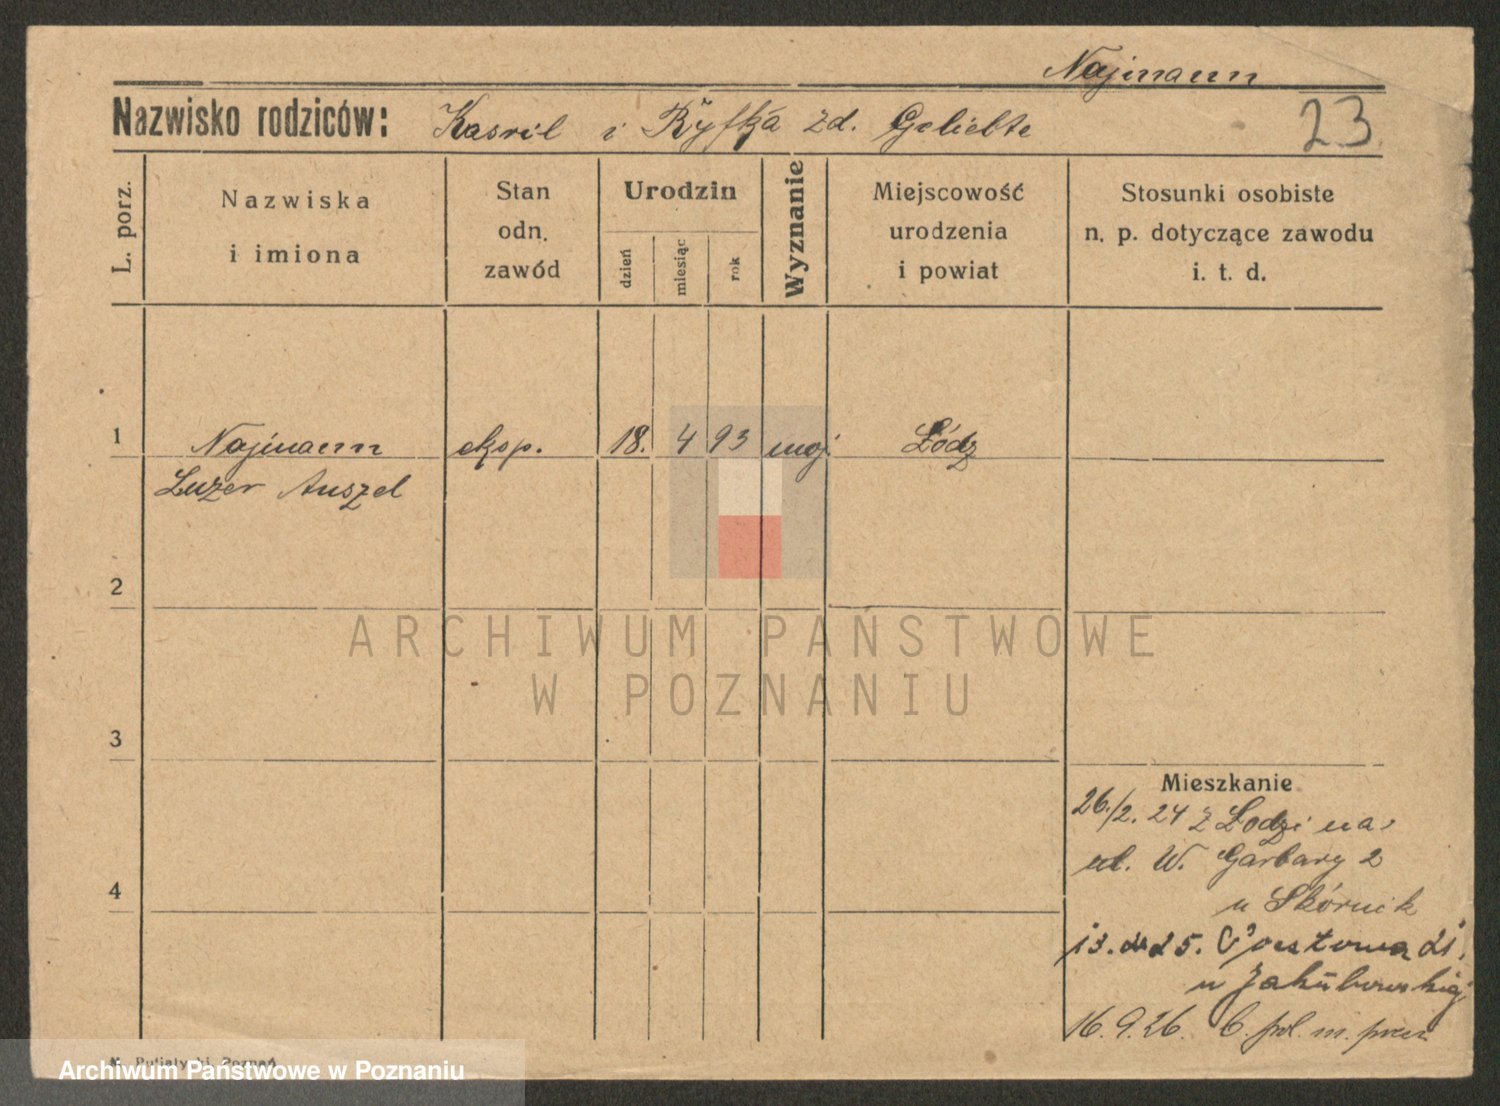 Najmann
Nazwisko rodziców: Kasril i Ryfka zd. Geliebte
23.
L. porz.
Nazwiska
i imiona
Stan
odn.
zawód
Urodzin
dzień
miesiąc
rok
Wyznanie
Miejscowość
urodzenia
i powiat
Stosunki osobiste
n. p. dotyczące zawodu
i. t. d.
1 Najmann eksp. 18. 4 93 moj. Łódz
Luzer Auszel
2
3
4
Mieszkanie
26./2. 24 z Lodzi na
ul. W. Garbary 2
u Skórnik
25. Pocztowa 21.
u Jakubowskiej
16. 9. 26. pol. m.
Poznań
ARCHIWUM PAŃSTWOWE
W POZNANIU
Archiwum Państwowe w Poznaniu